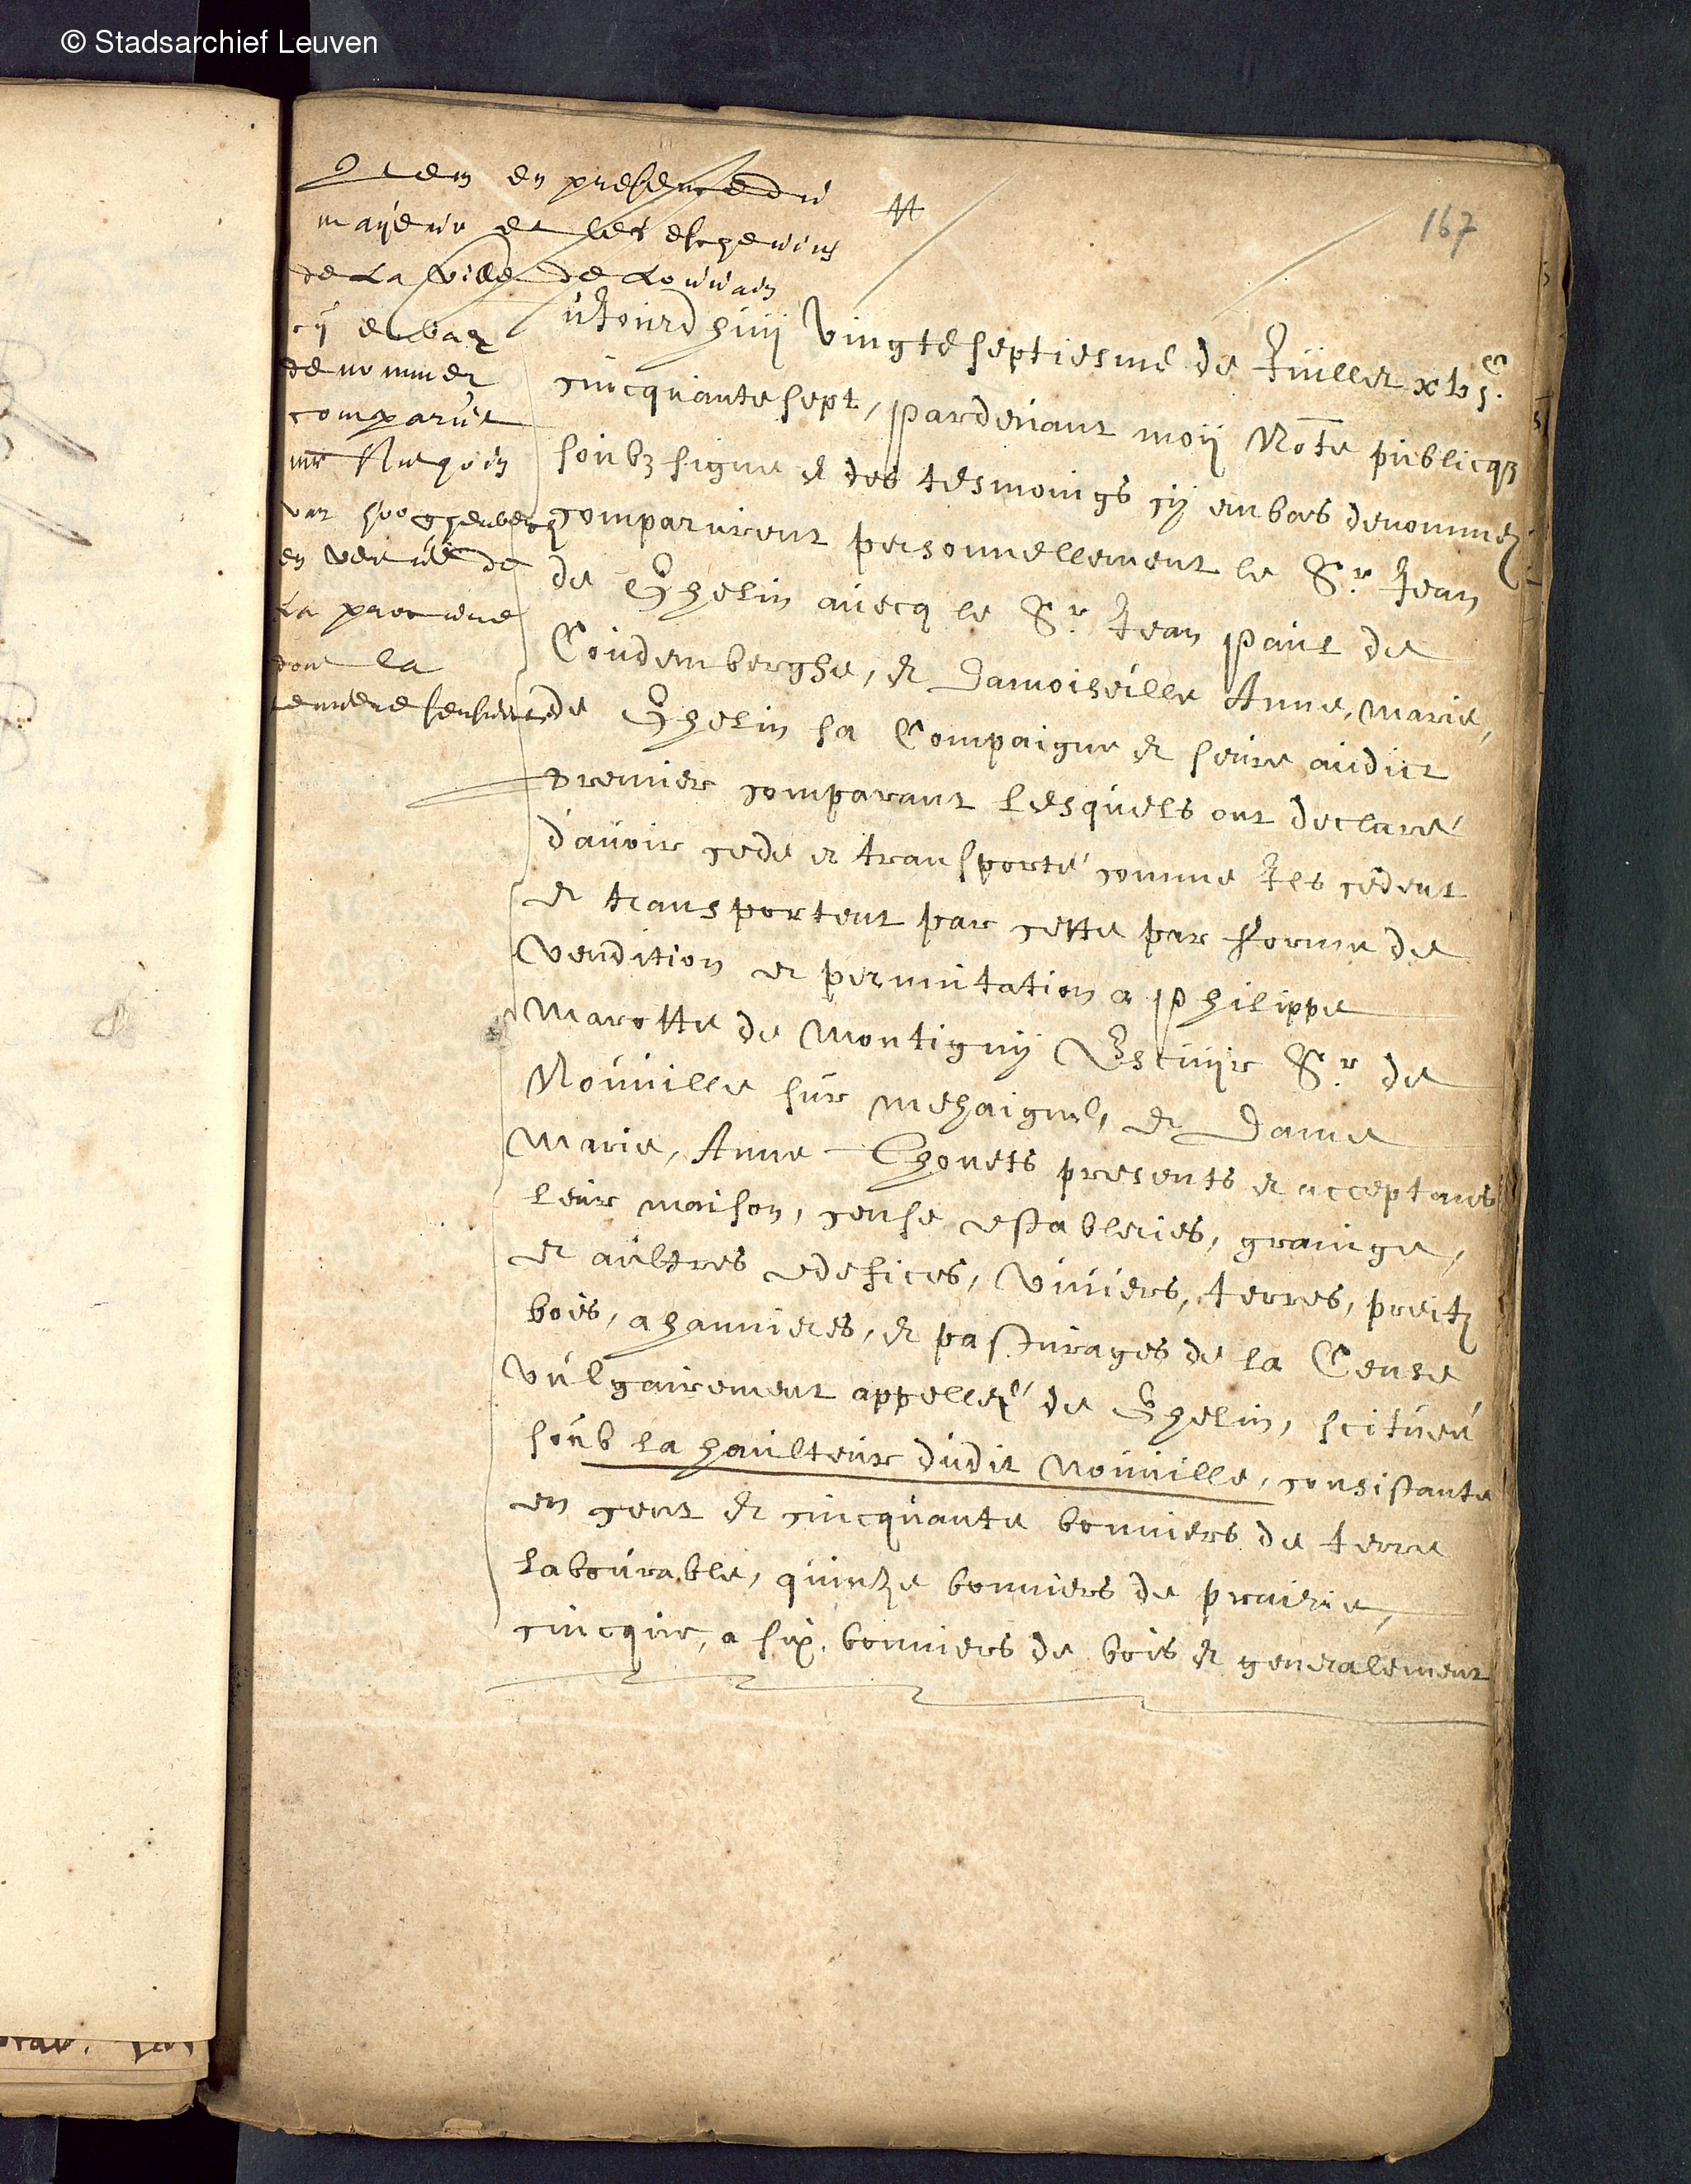 © Stadsarchief Leuven
167
Item en presence du
mayeur et les eschevins
de La ville de Louvain
cÿ embaz
denommez
comparut
mr
van hooghenberch
en vertu de
La procure
dont la
teneure sensuit
uJourdhuij vingteseptiesme de Juillet xvjc
cincquantesept, pardevant moij Note publicq
soubzsigne et des tesmoings cÿ embas denommez
comparurent personnellement le Sr. Jean
de Ghelin avecq le Sr. Jean Paul de
Coudemberghe, et Damoiseille Anne, Marie,
de Ghelin sa Compaigne et seure audict
premier comparant lesquels ont declaré
d'avoir cede et transporté comme Jls cedent
et transportent par cette par forme de
vendition et permutation a Philippe
Marotte de Montignÿ Escuÿr Sr. de
Nouville sur Mehaigne, et Dame
Marie, Anne Chonets presents et acceptants
leur maison, cense estableries, grainge,
et aultres edefices, viviers, terres, preitz
bois, ahannieres, et pasturages de la Cense
vulgairement appellez de Ghelin, scitueé
soub la haulteur dudit Nouville, consistante
en cent et cincquante bonniers de terre
labourable, quinze bonniers de prairie,
cincque, a six bonniers de bois et generalement